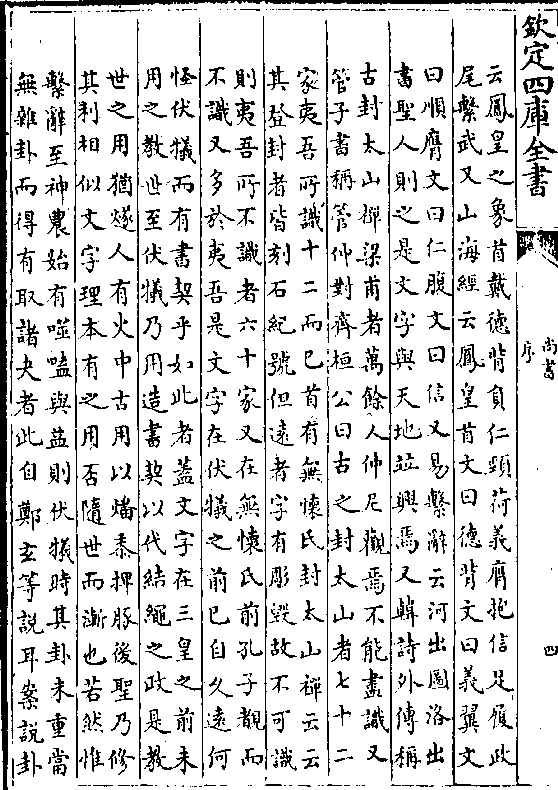 欽定四庫全書
尚書序
四
云鳳皇之象首戴德背負仁頸荷義膺抱信足履政
尾繫武又山海經云鳳皇首文曰德背文曰義翼文
曰順膺文曰仁腹文曰信又易繫辭云河出圖洛出
書聖人則之是文字與天地並興焉又韓詩外傳稱
古封太山禪梁甫者萬餘人仲尼觀焉不能盡識又
管子書稱管仲對齊桓公曰古之封太山者七十二
家夷吾所識十二而已首有無懷氏封太山禪云云
其登封者皆刻石紀號但遠者字有彫毀故不可識
則夷吾所不識者六十家又在無懷氏前孔子覩而
不識又多於夷吾是文字在伏犧之前已自久遠何
怪伏犧而有書契乎如此者蓋文字在三皇之前未
用之教世至伏犧乃用造書契以代結繩之政是教
世之用猶燧人有火中古用以燔黍捭豚後聖乃修
其利相似文字理本有之用否隨世而漸也若然惟
繫辭至神農始有噬嗑與益則伏犧時其卦未重當
無雜卦而得有取諸夬者此自鄭玄等說耳案說卦